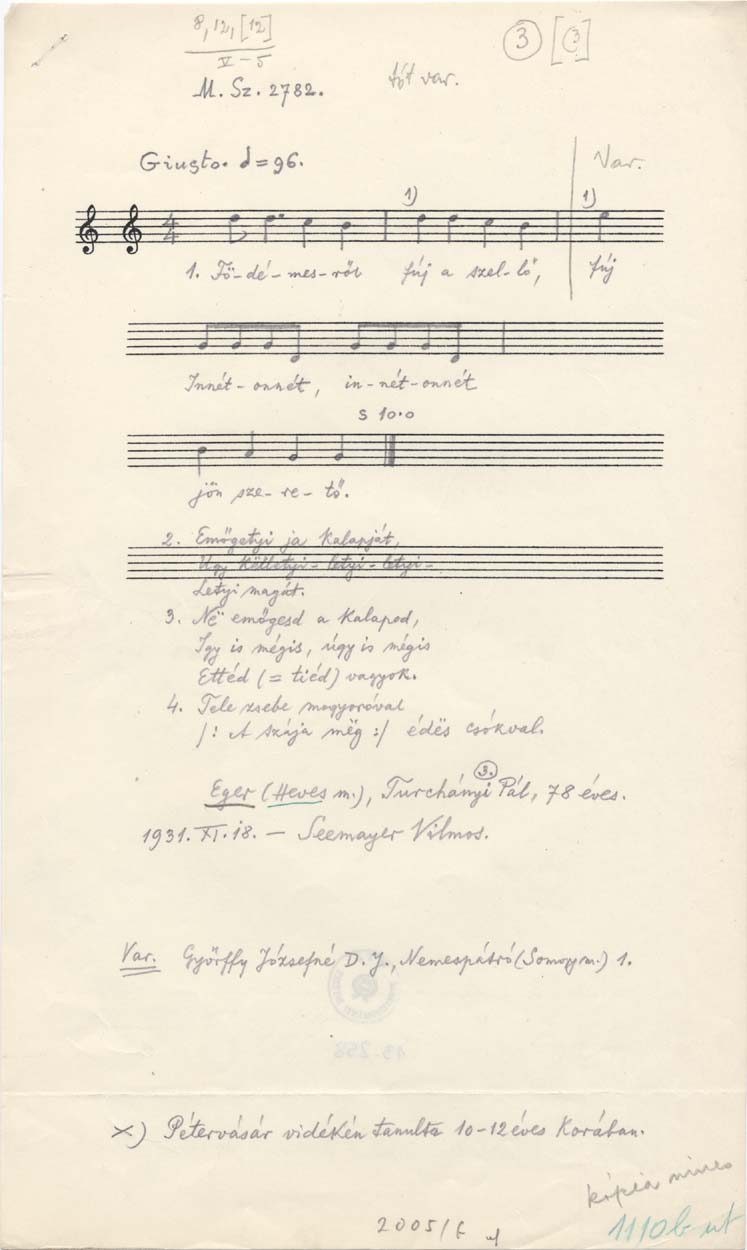 8, 12, [12]
V – 5
3 [3]
M. Sz. 2782.
tót var.
Giusto. d = 96.
Var.
1)
1)
4
4
1. Fő-dé-mes-ről fúj a szel-lő,
fúj
Innét-onnét, in-nét-onnét
s 10.0
jön sze-re-tő.
2. Emőgetyi ja kalapját,
Ugy këlletyi-letyi-letyi-
Letyi magát.
3. Në emőgesd a kalapod,
Igy is mégis, úgy is mégis
Ettéd (= tiéd) vagyok.
4. Tele zsebe mogyoróval
/: A szája mëg :/ édës csókval.
3.
Eger (Heves m.), Turchányi Pál, 78 éves.
1931. XI. 18. – Seemayer Vilmos.
Var. Győrffy Józsefné D. J., Nemespátró (Somogy m.) 1.
13.258
x) Pétervásár vidékén tanulta 10-12 éves korában.
kópia nincs
2005/f
1110b